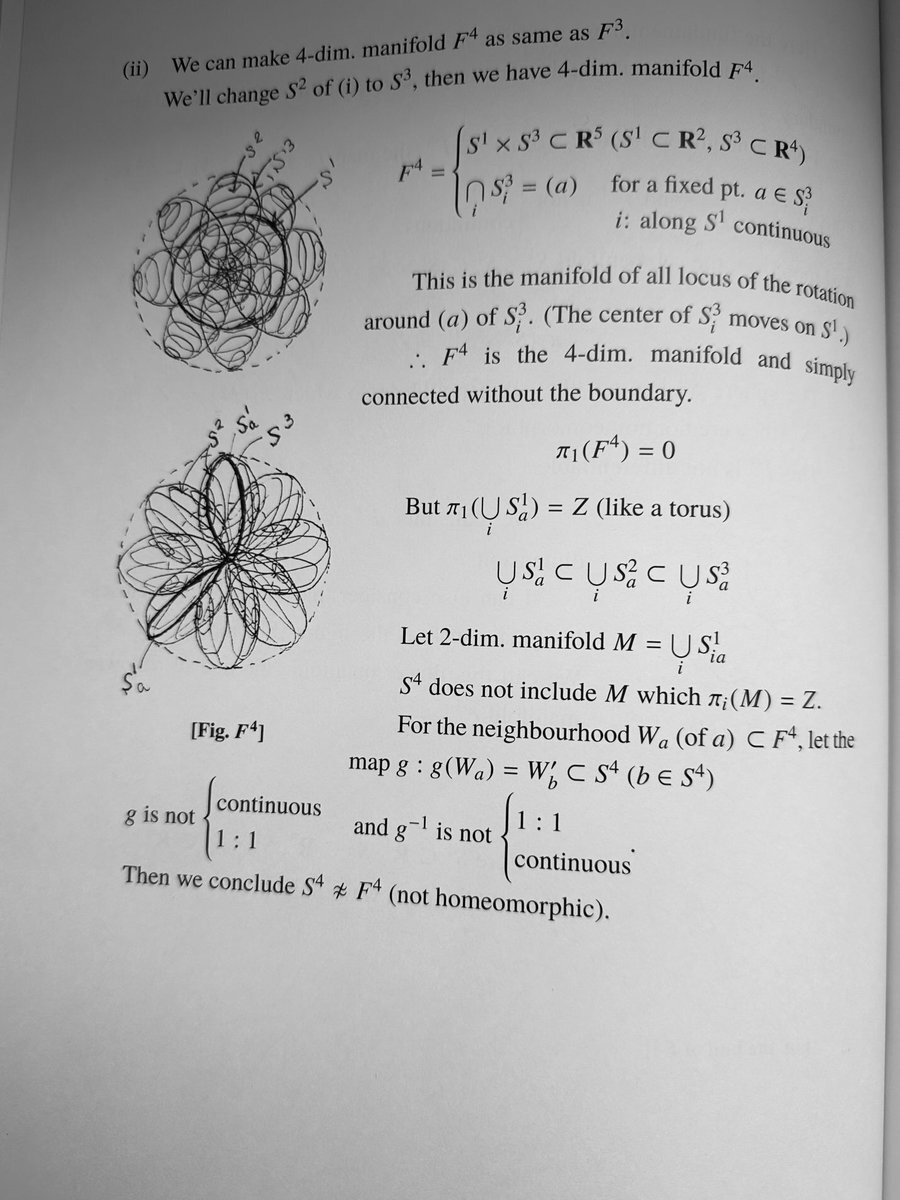 (ii) We can make 4-dim. manifold F⁴ as same as F³.
We'll change S² of (i) to S³, then we have 4-dim. manifold F⁴.
S² S³ S¹
F⁴ = { S¹ × S³ ⊂ R⁵ (S¹ ⊂ R², S³ ⊂ R⁴)
⋂_i S_i³ = (a) for a fixed pt. a ∈ S_i³
i: along S¹ continuous
This is the manifold of all locus of the rotation
around (a) of S_i³. (The center of S_i³ moves on S¹.)
∴ F⁴ is the 4-dim. manifold and simply
connected without the boundary.
S² S_a¹ S³
π₁(F⁴) = 0
But π₁(⋃_i S_a¹) = Z (like a torus)
⋃_i S_a¹ ⊂ ⋃_i S_a² ⊂ ⋃_i S_a³
Let 2-dim. manifold M = ⋃_i S_{ia}¹
S_a¹
S⁴ does not include M which π_i(M) = Z.
[Fig. F⁴]
For the neighbourhood W_a (of a) ⊂ F⁴, let the
map g : g(W_a) = W′_b ⊂ S⁴ (b ∈ S⁴)
g is not { continuous
1 : 1
and g⁻¹ is not { 1 : 1
continuous.
Then we conclude S⁴ ≉ F⁴ (not homeomorphic).